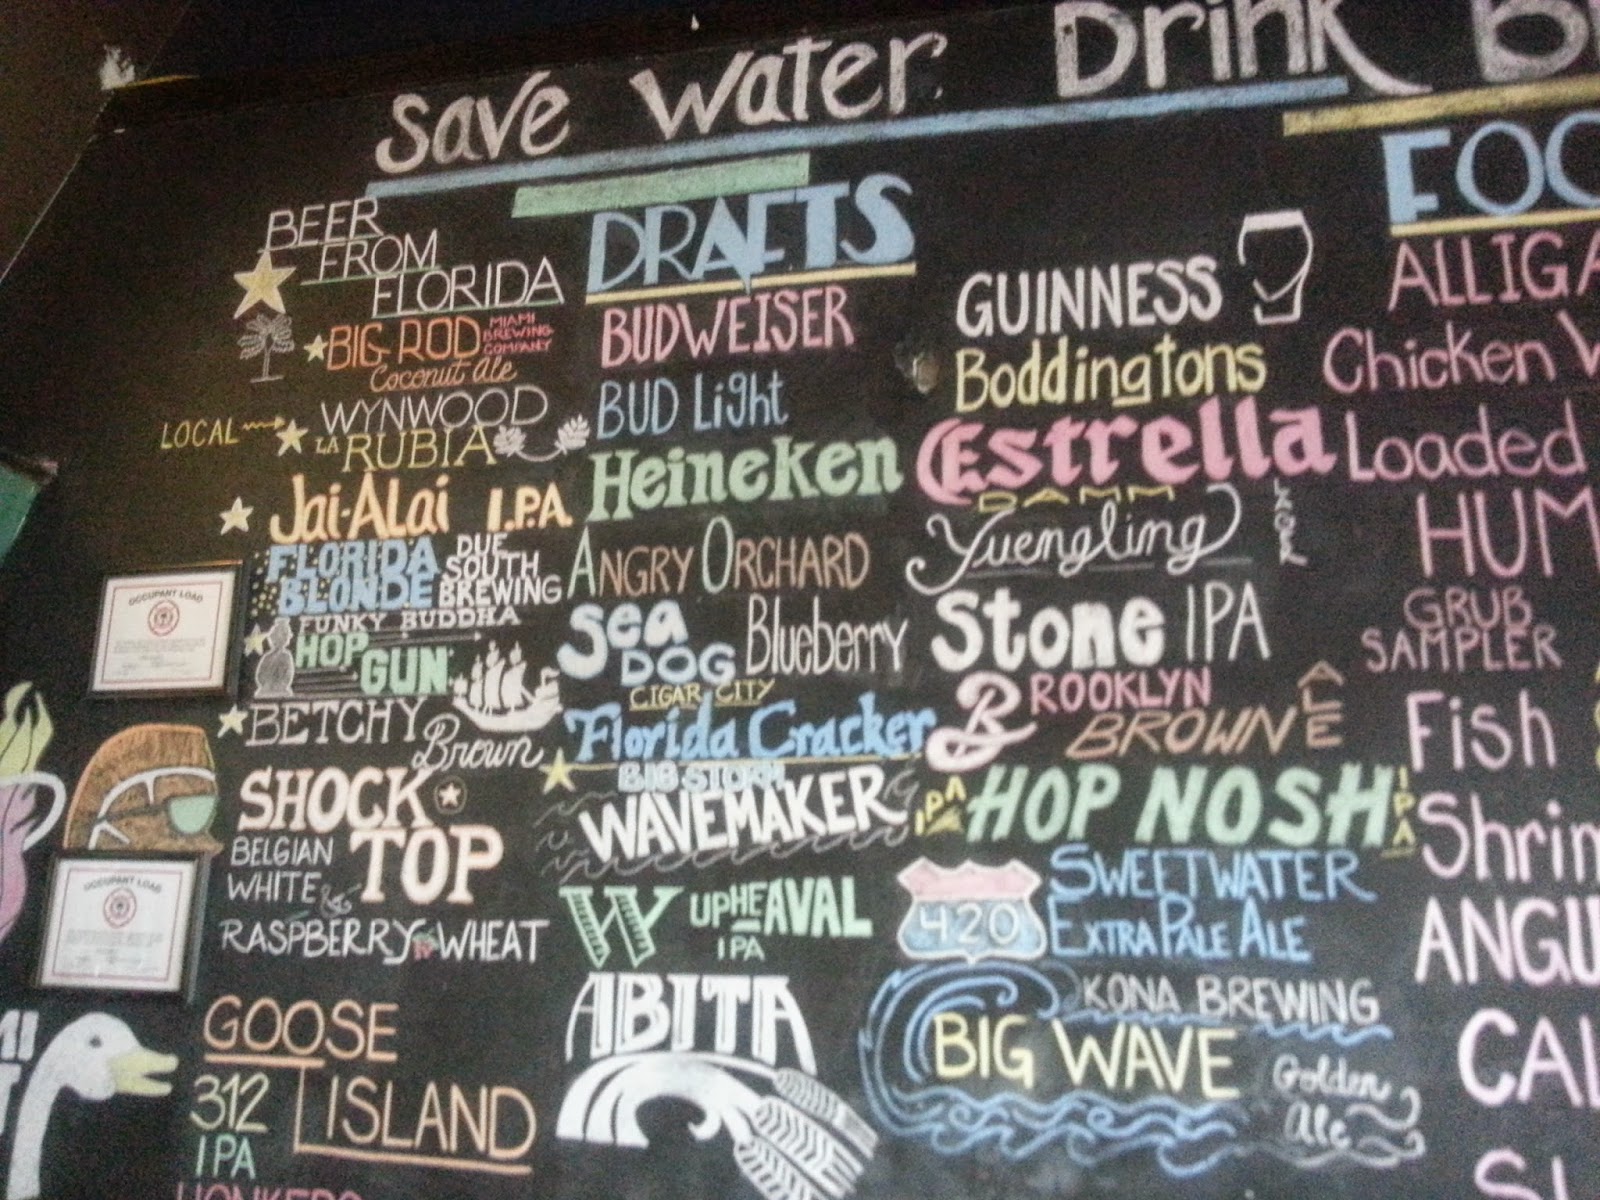 Save Water Drink
BEER
FROM
FLORIDA
BIG ROD MIAMI
BREWING
COMPANY
Coconut Ale
LOCAL
WYNWOOD
LA RUBIA
Jai-Alai I.P.A.
FLORIDA
BLONDE
DUE
SOUTH
BREWING
FUNKY BUDDHA
HOP
GUN
BETCHY
Brown
SHOCK
TOP
BELGIAN
WHITE &
RASPBERRY WHEAT
GOOSE
ISLAND
312
IPA
HONKERS
DRAFTS
BUDWEISER
BUD Light
Heineken
ANGRY ORCHARD
Sea
DOG
Blueberry
CIGAR CITY
Florida Cracker
BIG STORM
WAVEMAKER
W UPHEAVAL
IPA
ABITA
GUINNESS
Boddingtons
Estrella
DAMM
LAGER
Yuengling
Stone IPA
BROOKLYN
BROWN
ALE
IPA HOP NOSH IPA
420
SWEETWATER
EXTRA PALE ALE
KONA BREWING
BIG WAVE
Golden
Ale
FOO
ALLIGA
Chicken W
Loaded
HUM
GRUB
SAMPLER
Fish
Shrim
ANGU
CAL
OCCUPANT LOAD
OCCUPANT LOAD
MI